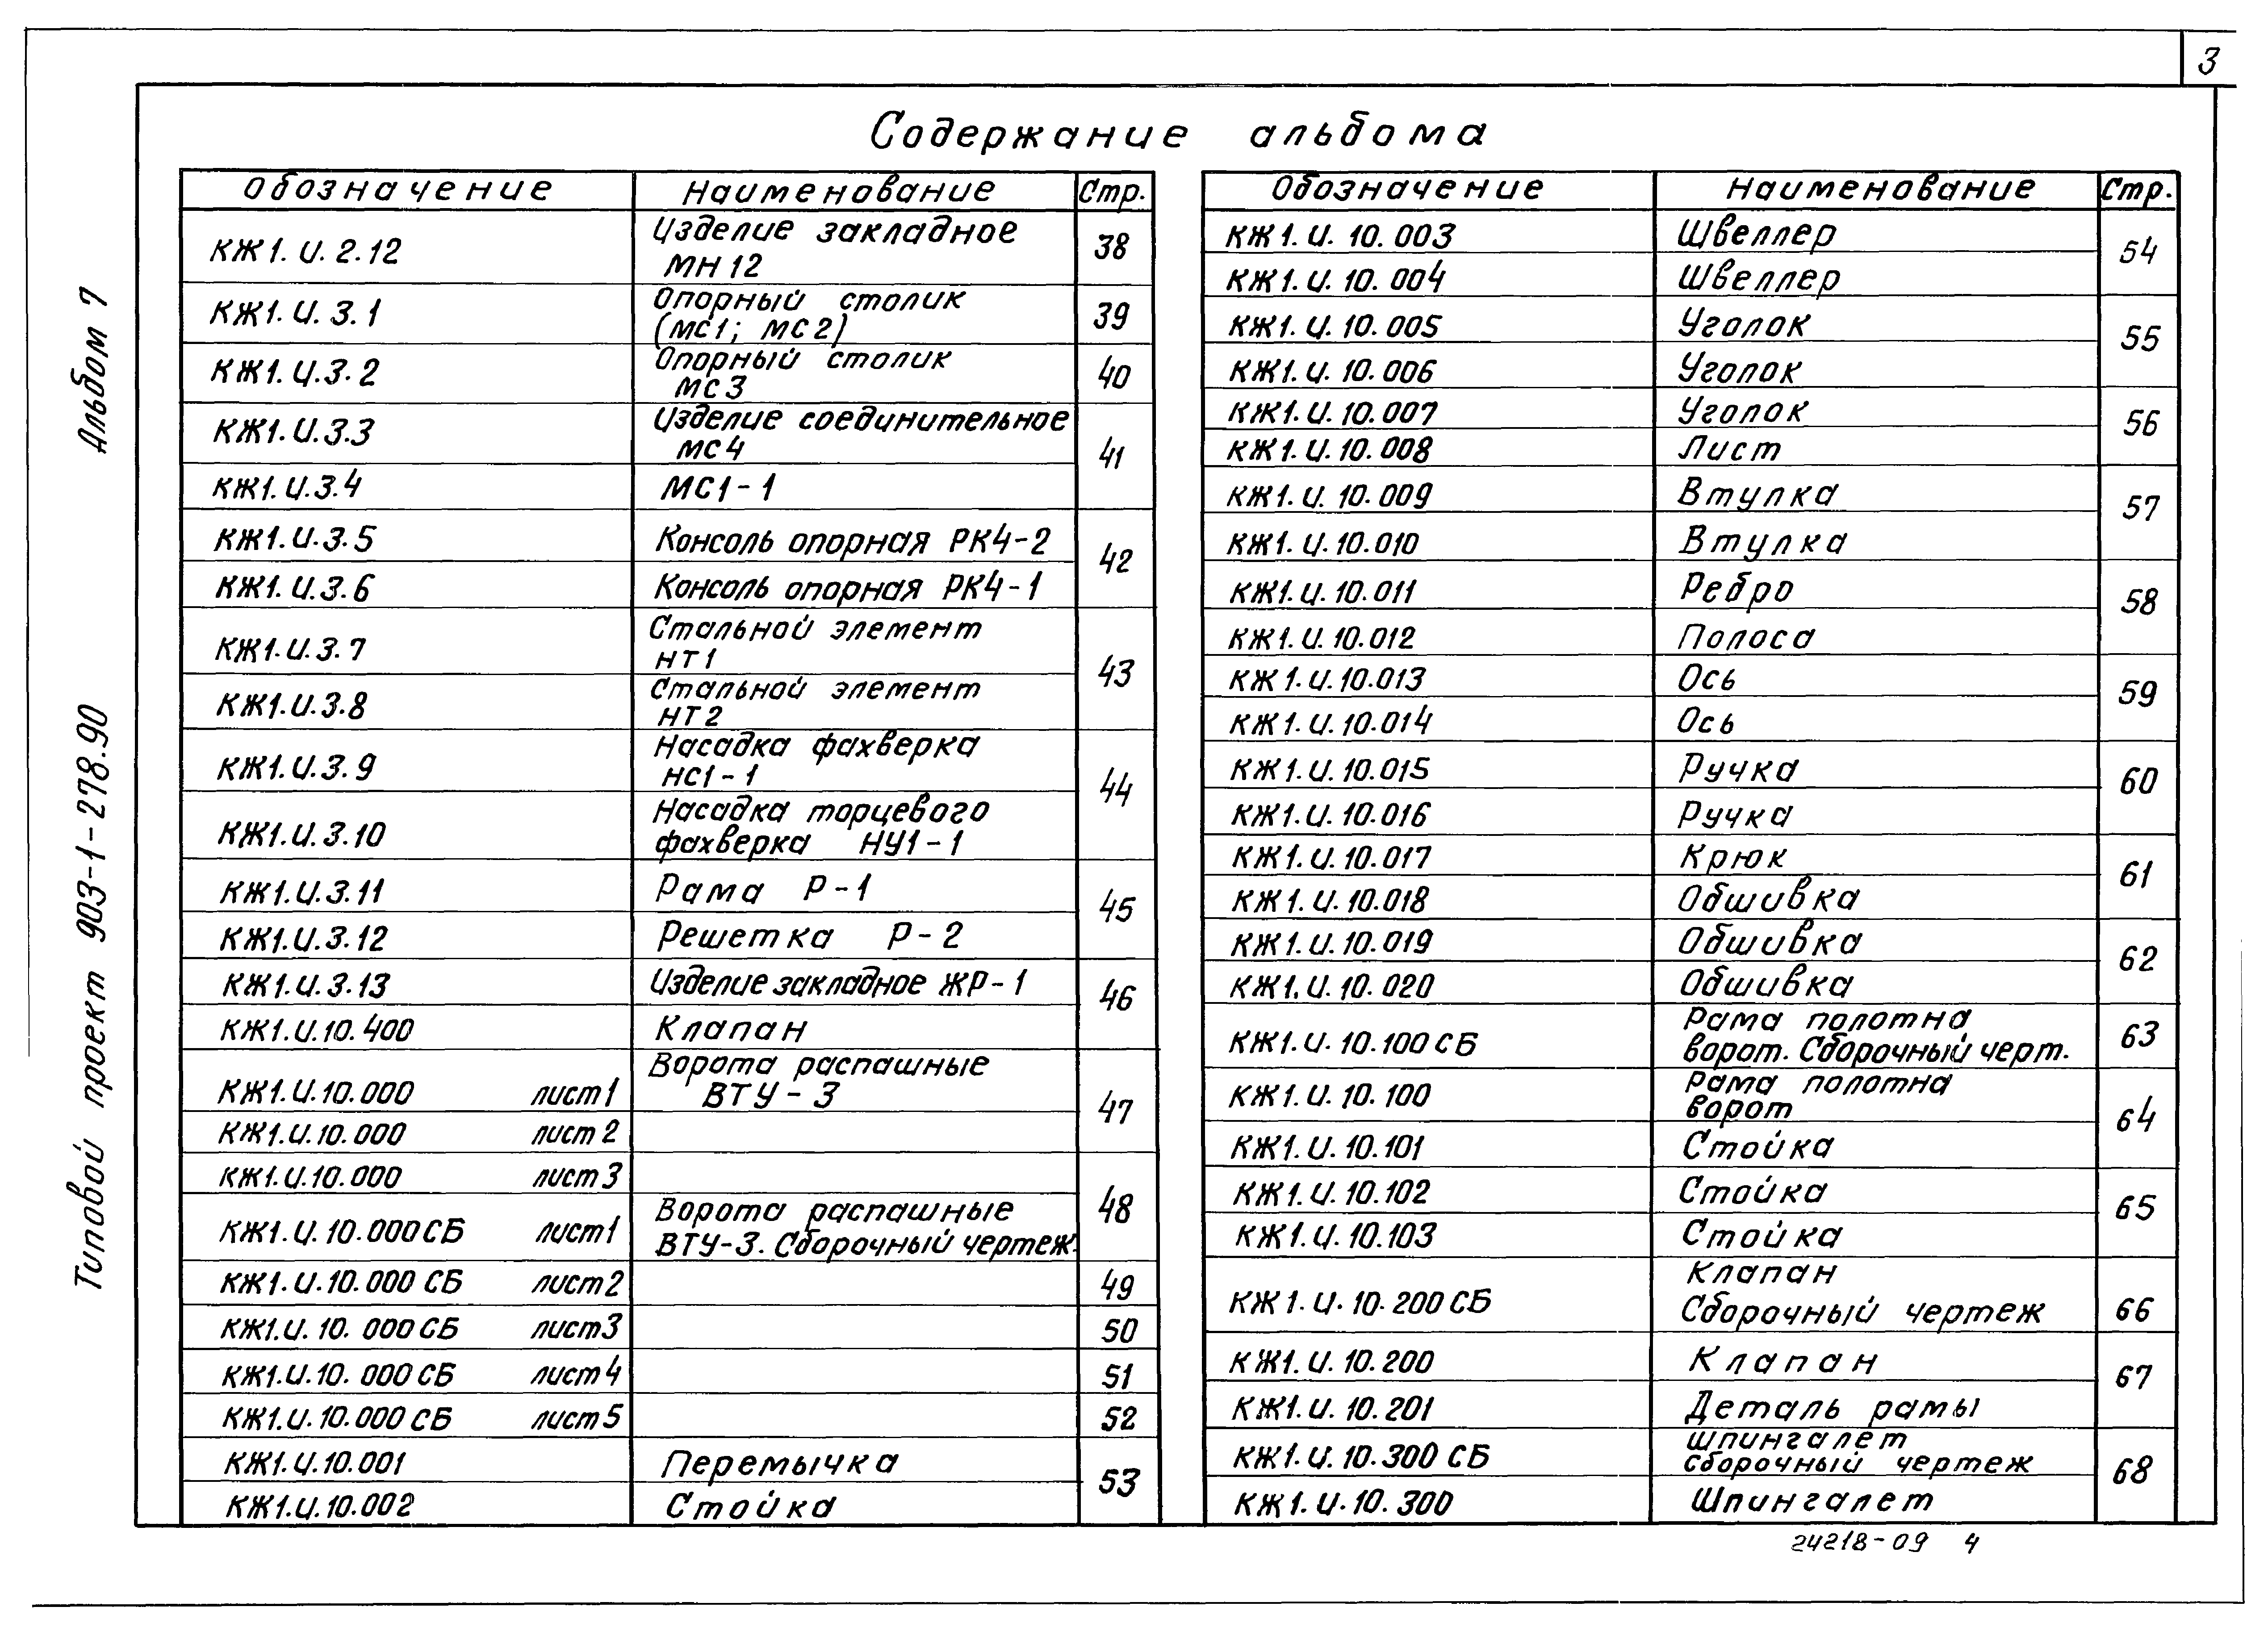 3
Содержание альбома
Обозначение Наименование Стр.
КЖ1.И.2.12 Изделие закладное 38
МН12
КЖ1.И.3.1 Опорный столик 39
(МС1; МС2)
КЖ1.И.3.2 Опорный столик 40
МС3
КЖ1.И.3.3 Изделие соединительное 41
МС4
КЖ1.И.3.4 МС1-1
КЖ1.И.3.5 Консоль опорная РК4-2 42
КЖ1.И.3.6 Консоль опорная РК4-1
КЖ1.И.3.7 Стальной элемент 43
НТ1
КЖ1.И.3.8 Стальной элемент
НТ2
КЖ1.И.3.9 Насадка фахверка 44
НС1-1
КЖ1.И.3.10 Насадка торцевого
фахверка НУ1-1
КЖ1.И.3.11 Рама Р-1 45
КЖ1.И.3.12 Решетка Р-2
КЖ1.И.3.13 Изделие закладное ЖР-1 46
КЖ1.И.10.400 Клапан
КЖ1.И.10.000 лист1 Ворота распашные 47
ВТУ-3
КЖ1.И.10.000 лист2
КЖ1.И.10.000 лист3 48
КЖ1.И.10.000СБ лист1 Ворота распашные
ВТУ-3. Сборочный чертеж.
КЖ1.И.10.000 СБ лист2 49
КЖ1.И.10.000СБ лист3 50
КЖ1.И.10.000СБ лист4 51
КЖ1.И.10.000СБ лист5 52
КЖ1.И.10.001 Перемычка 53
КЖ1.И.10.002 Стойка
Обозначение Наименование Стр.
КЖ1.И.10.003 Швеллер 54
КЖ1.И.10.004 Швеллер
КЖ1.И.10.005 Уголок 55
КЖ1.И.10.006 Уголок
КЖ1.И.10.007 Уголок 56
КЖ1.И.10.008 Лист
КЖ1.И.10.009 Втулка 57
КЖ1.И.10.010 Втулка
КЖ1.И.10.011 Ребро 58
КЖ1.И.10.012 Полоса
КЖ1.И.10.013 Ось 59
КЖ1.И.10.014 Ось
КЖ1.И.10.015 Ручка 60
КЖ1.И.10.016 Ручка
КЖ1.И.10.017 Крюк 61
КЖ1.И.10.018 Обшивка
КЖ1.И.10.019 Обшивка 62
КЖ1.И.10.020 Обшивка
КЖ1.И.10.100СБ Рама полотна 63
ворот. Сборочный черт.
КЖ1.И.10.100 Рама полотна 64
ворот
КЖ1.И.10.101 Стойка
КЖ1.И.10.102 Стойка 65
КЖ1.И.10.103 Стойка
КЖ1.И.10.200СБ Клапан 66
Сборочный чертеж
КЖ1.И.10.200 Клапан 67
КЖ1.И.10.201 Деталь рамы
КЖ1.И.10.300 СБ Шпингалет 68
Сборочный чертеж
КЖ1.И.10.300 Шпингалет
24218-09 4
Типовой проект 903-1-278.90 Альбом 7